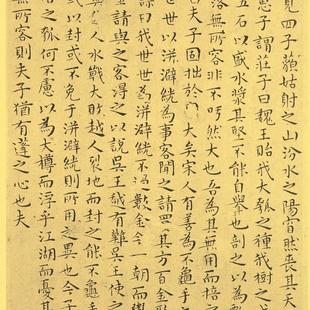 見四子藐姑射之山汾水之陽窅然喪其天
惠子謂莊子曰魏王貽我大瓠之種我樹之
五石以盛水漿其堅不能自舉也剖之以為
無所容非不呺然大也吾為其無用而掊之
夫子固拙於大矣宋人有善為不龜手
世世以洴澼絖為事客聞之請買其方百金
謀曰我世世為洴澼絖不過數金今一朝而鬻
金請與之客得之以說吳王越有難吳王使之
與越人水戰大敗越人裂地而封之能不龜手
或以封或不免於洴澼絖則所用之異也今子
石之瓠何不慮以為大樽而浮乎江湖而憂其
無所容則夫子猶有蓬之心也夫